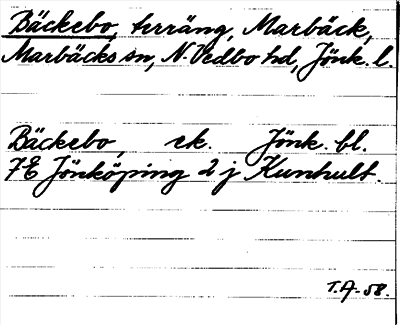 Bäckebo, terräng, Marbäck,
Marbäcks sn, N. Vedbo hd, Jönk. l.
Bäckebo, ek. Jönk. bl.
7E Jönköping 2 j Kunhult.
T.A. 58.